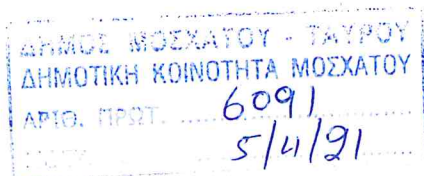 ΔΗΜΟΣ ΜΟΣΧΑΤΟΥ - ΤΑΥΡΟΥ
ΔΗΜΟΤΙΚΗ ΚΟΙΝΟΤΗΤΑ ΜΟΣΧΑΤΟΥ
ΑΡΙΘ. ΠΡΩΤ. 6091
5/4/21